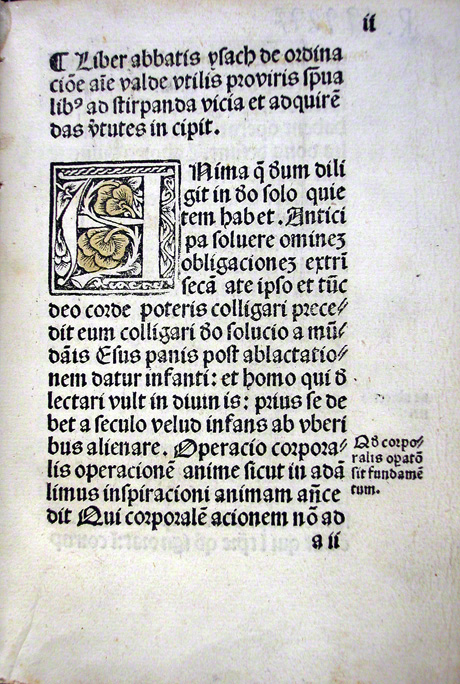 ii
¶ Liber abbatis ysach de ordina
ciōe aīe valde vtilis proviris sp̄ua
libꝰ ad stirpanda vicia et adquirē
das v̄tutes in cipit.
ANima q̄ dum dili
git in do solo quie
tem habet. Antici
pa soluere omineʒ
obligacioneʒ extrī
secā ate ipso et tūc
deo corde poteris colligari prece⸗
dit eum colligari do solucio a mū⸗
dāis Esus panis post ablactatio⸗
nem datur infanti: et homo qui d̄
lectari vult in diuin is: prius se de
bet a seculo velud infans ab vberi
bus alienare. Operacio corpora⸗
lis operacionē anime sicut in adā
limus inspiracioni animam an̄ce
dit Qui corporalē acionem nō ad
Qd corpo⸗
ralis oꝑatō
sit fundamē
tum.
a ii